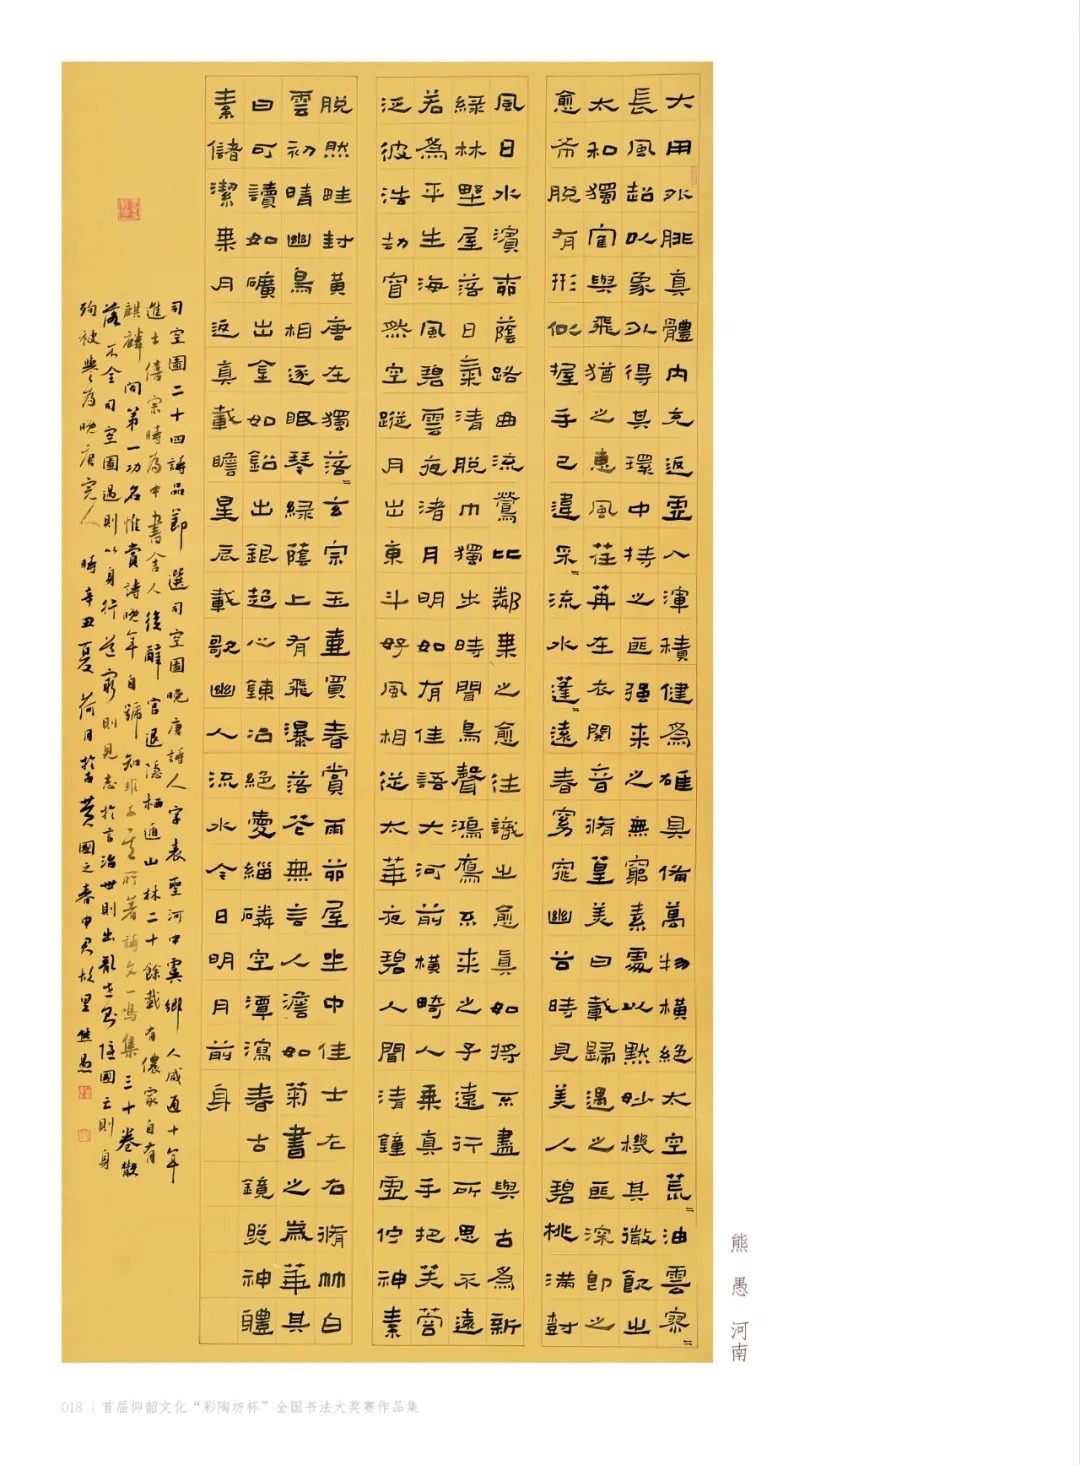 大用外腓真體内充返虚入渾積健爲雄具備萬物橫絕太空荒〻油雲寥〻
長風超以象外得其環中持之匪强来之無窮素處以默妙機其微飲之
太和獨寉與飛猶之惠風荏苒在衣閱音脩篁美曰載歸遇之匪深即之
愈希脱有形似握手已違采〻流水蓬〻遠春窈窕幽谷時見美人碧桃滿樹
風日水濱桺蔭路曲流鶯比鄰乗之愈往識之愈真如將不盡與古爲新
緑林野屋落日氣清脱巾獨步時聞鳥聲鴻鴈不来之子遠行所思不遠
若爲平生海風碧雲夜渚月明如有佳語大河前橫畸人乗真手把芙蓉
泛彼浩劫窅然空蹤月出東斗好風相從太華夜碧人聞清鐘虚佇神素
脱然畦封黄唐在獨落〻玄宗玉壺買春賞雨茆屋坐中佳士左右脩竹白
雲初晴幽鳥相逐眠琴緑蔭上有飛瀑落花無言人澹如菊書之歲華其
曰可讀如礦出金如鉛出銀超心鍊冶絕愛緇磷空潭瀉春古鏡照神體
素儲潔乗月返真載瞻星辰載歌幽人流水今日明月前身
司空圖二十四詩品節選司空圖晚唐詩人字表聖河中虞鄉人咸通十年
進士僖宗時爲中書舍人後辭官退隱栖遁山林二十餘載有儂家自有
麒麟閣第一功名惟賞詩晚年自號知非子所著詩文一鳴集三十卷散
落不全司空圖遇則以身行道窮則見志於言治世則出亂世則隱國亡則身
殉被譽爲晚唐完人 時辛丑夏荷月於古黄國之春申君故里熊愚
熊愚 河南
018 | 首届仰韶文化“彩陶坊杯”全国书法大奖赛作品集